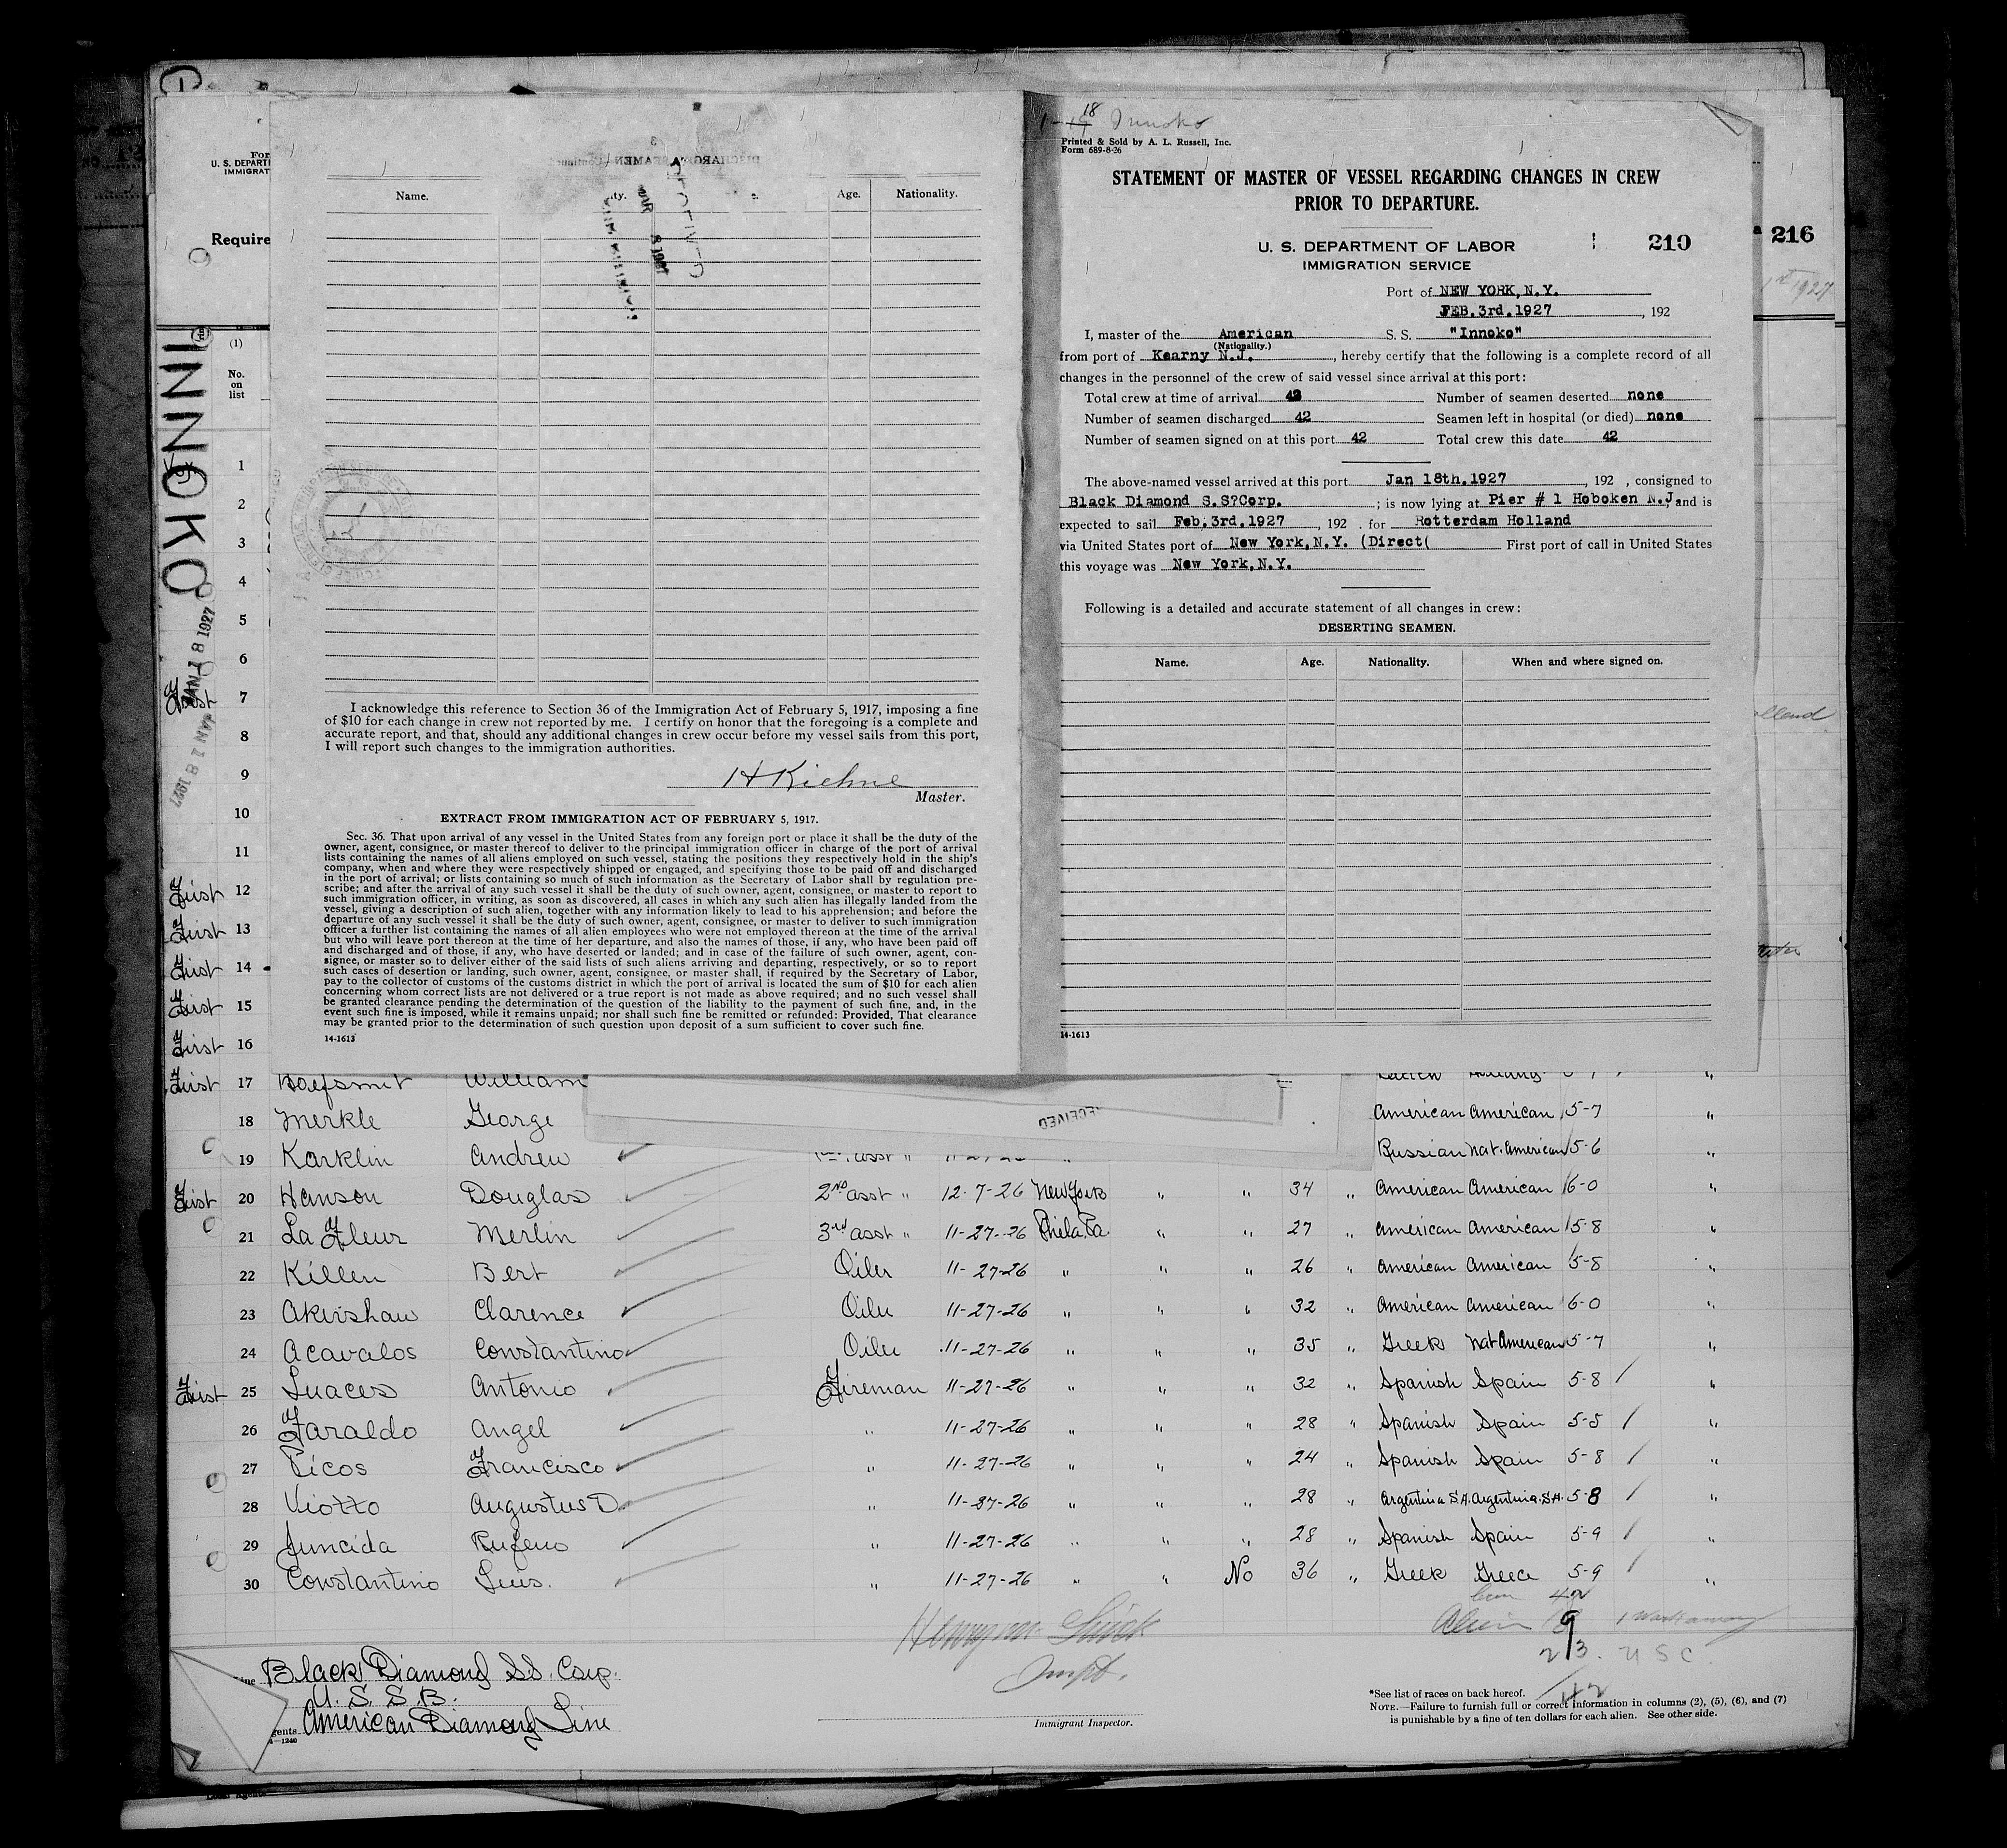 Name.
Age.
Nationality.
I acknowledge this reference to Section 36 of the Immigration Act of February 5, 1917, imposing a fine
of $10 for each change in crew not reported by me. I certify on honor that the foregoing is a complete and
accurate report, and that, should any additional changes in crew occur before my vessel sails from this port,
I will report such changes to the immigration authorities.
H Kiehne
Master.
EXTRACT FROM IMMIGRATION ACT OF FEBRUARY 5, 1917.
Sec. 36. That upon arrival of any vessel in the United States from any foreign port or place it shall be the duty of the
owner, agent, consignee, or master thereof to deliver to the principal immigration officer in charge of the port of arrival
lists containing the names of all aliens employed on such vessel, stating the positions they respectively hold in the ship's
company, when and where they were respectively shipped or engaged, and specifying those to be paid off and discharged
in the port of arrival; or lists containing so much of such information as the Secretary of Labor shall by regulation pre-
scribe; and after the arrival of any such vessel it shall be the duty of such owner, agent, consignee, or master to report to
such immigration officer, in writing, as soon as discovered, all cases in which any such alien has illegally landed from the
vessel, giving a description of such alien, together with any information likely to lead to his apprehension; and before the
departure of any such vessel it shall be the duty of such owner, agent, consignee, or master to deliver to such immigration
officer a further list containing the names of all alien employees who were not employed thereon at the time of the arrival
but who will leave port thereon at the time of her departure, and also the names of those, if any, who have been paid off
and discharged and of those, if any, who have deserted or landed; and in case of the failure of such owner, agent, con-
signee, or master so to deliver either of the said lists of such aliens arriving and departing, respectively, or so to report
such cases of desertion or landing, such owner, agent, consignee, or master shall, if required by the Secretary of Labor,
pay to the collector of customs of the customs district in which the port of arrival is located the sum of $10 for each alien
concerning whom correct lists are not delivered or a true report is not made as above required; and no such vessel shall
be granted clearance pending the determination of the question of the liability to the payment of such fine, and, in the
event such fine is imposed, while it remains unpaid; nor shall such fine be remitted or refunded: Provided, That clearance
may be granted prior to the determination of such question upon deposit of a sum sufficient to cover such fine.
14-1613
18 Innoko
Printed & Sold by A. L. Russell, Inc.
Form 689-8-26
STATEMENT OF MASTER OF VESSEL REGARDING CHANGES IN CREW
PRIOR TO DEPARTURE.
U. S. DEPARTMENT OF LABOR 210
IMMIGRATION SERVICE
Port of NEW YORK,N.Y.
FEB.3rd.1927, 192
I, master of the American S. S. "Innoko"
(Nationality.)
from port of Kearny N.J., hereby certify that the following is a complete record of all
changes in the personnel of the crew of said vessel since arrival at this port:
Total crew at time of arrival 42 Number of seamen deserted none
Number of seamen discharged 42 Seamen left in hospital (or died) none
Number of seamen signed on at this port 42 Total crew this date 42
The above-named vessel arrived at this port Jan 18th.1927, 192 , consigned to
Black Diamond S.S?Corp. ; is now lying at Pier # 1 Hoboken N.J, and is
expected to sail Feb.3rd.1927, 192 . for Rotterdam Holland
via United States port of New York,N.Y. (Direct( First port of call in United States
this voyage was New York,N.Y.
Following is a detailed and accurate statement of all changes in crew:
DESERTING SEAMEN.
Name. Age. Nationality. When and where signed on.
14-1613
216
1st 1927
U. S. DEPARTI
IMMIGRAT
Require
INNOKO
JAN 18 1927
JAN 18 1927
(1)
No.
on
list
1
2
3
4
5
6
First 7
8
9
10
11
First 12
First 13
First 14
First 15
First 16
First 17 William
18 Merkle George American American 5-7 "
RECEIVED
19 Karklin Andrew Russian Nat. American 5-6 "
First 20 Hanson Douglas 2ND asst " 12-7-26 New York " " 34 " American American 6-0 "
21 La Fleur Merlin 3rd asst " 11-27-26 Phila. Pa. " " 27 " American American 5-8 "
22 Killen Bert Oiler 11-27-26 " " " 26 " American American 5-8 "
23 Akershaw Clarence Oiler 11-27-26 " " " 32 " American American 6-0 "
24 Acavalos Constantino Oiler 11-27-26 " " " 35 " Greek Nat American 5-7 "
First 25 Luaces Antonio Fireman 11-27-26 " " " 32 " Spanish Spain 5-8 "
26 Faraldo Angel " 11-27-26 " " " 28 " Spanish Spain 5-5 "
27 Picos Francisco " 11-27-26 " " " 24 " Spanish Spain 5-8 "
28 Viotto Augustus D. " 11-27-26 " " " 28 " Argentina S.A. Argentina S.A. 5-8 "
29 Juncida Rufeno " 11-27-26 " " " 28 " Spanish Spain 5-9 "
30 Constantino Luis. " 11-27-26 " " No 36 " Greek Greece 5-9 "
Black Diamond S.S. Corp.
U. S. S. B.
American Diamond Line
Immigrant Inspector.
23. U S C.
*See list of races on back hereof.
NOTE.—Failure to furnish full or correct information in columns (2), (5), (6), and (7)
is punishable by a fine of ten dollars for each alien. See other side.